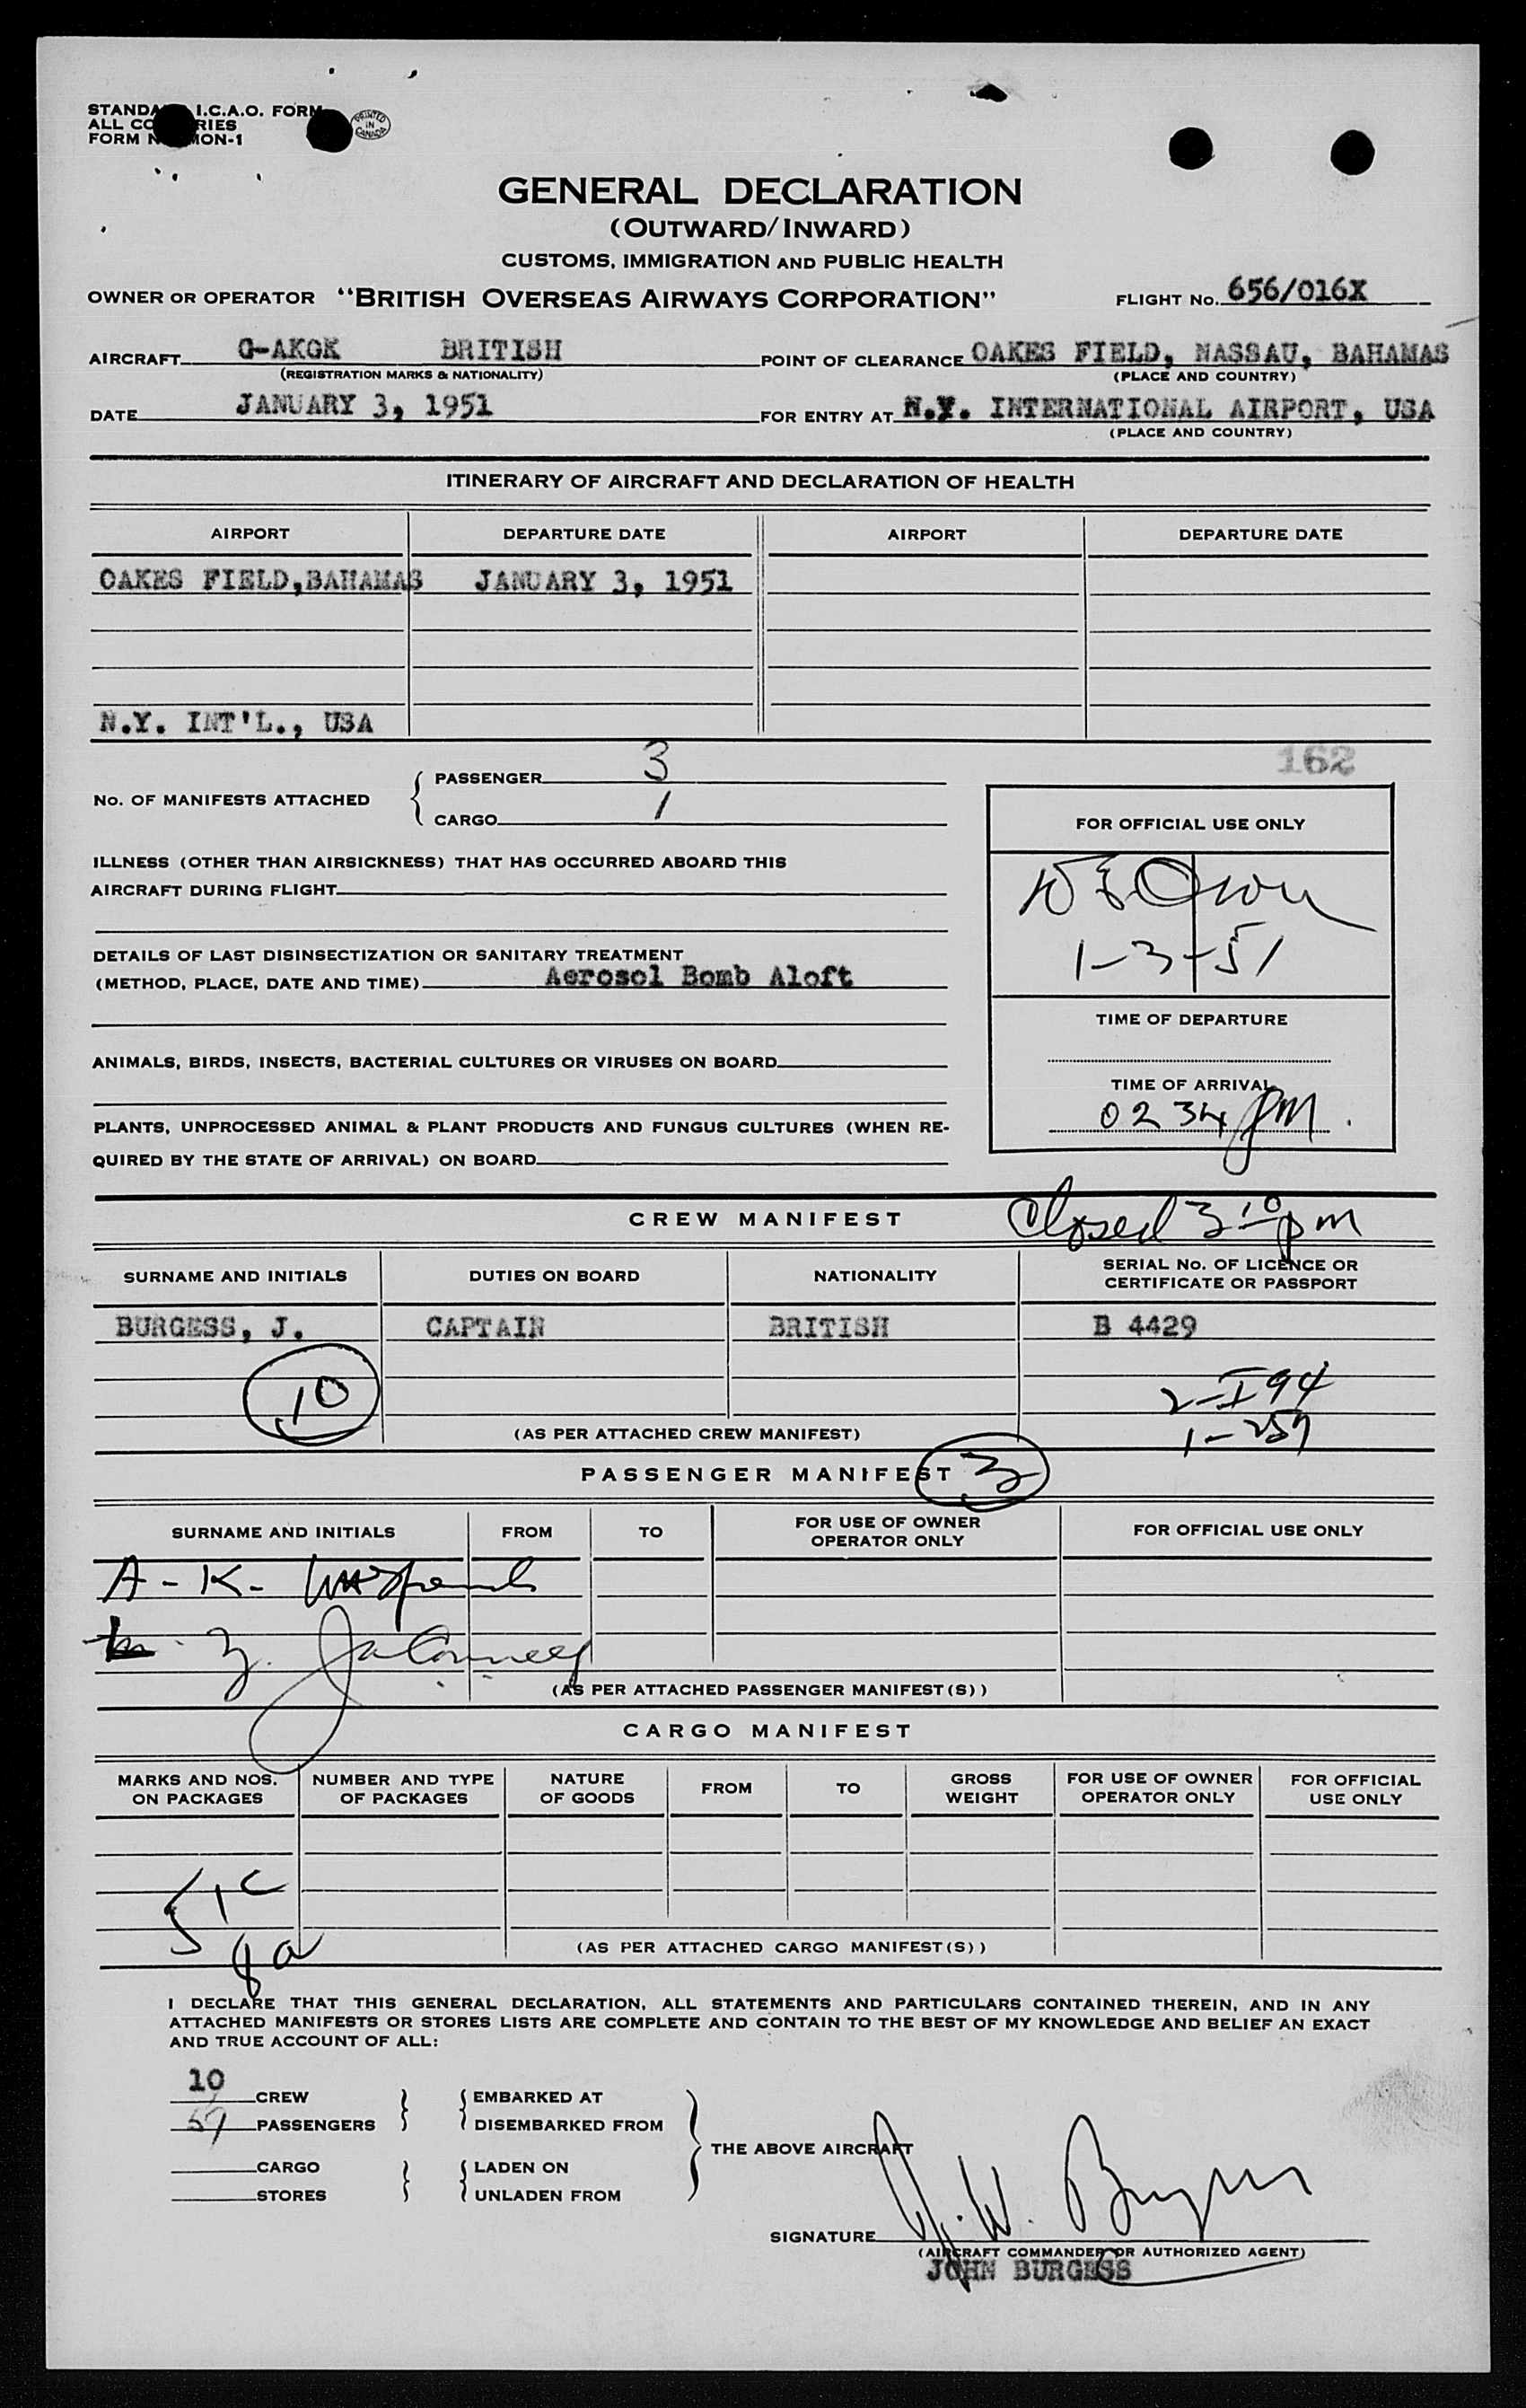 STANDA I.C.A.O. FORM
ALL CO RIES
FORM N MON-1
PRINTED IN CANADA
GENERAL DECLARATION
(OUTWARD/INWARD)
CUSTOMS, IMMIGRATION AND PUBLIC HEALTH
OWNER OR OPERATOR "BRITISH OVERSEAS AIRWAYS CORPORATION" FLIGHT No. 656/016X
AIRCRAFT G-AKGK BRITISH POINT OF CLEARANCE OAKES FIELD, NASSAU, BAHAMAS
(REGISTRATION MARKS & NATIONALITY) (PLACE AND COUNTRY)
DATE JANUARY 3, 1951 FOR ENTRY AT N.Y. INTERNATIONAL AIRPORT, USA
(PLACE AND COUNTRY)
ITINERARY OF AIRCRAFT AND DECLARATION OF HEALTH
AIRPORT DEPARTURE DATE AIRPORT DEPARTURE DATE
OAKES FIELD,BAHAMAS JANUARY 3, 1951
N.Y. INT'L., USA
162
No. OF MANIFESTS ATTACHED
PASSENGER 3
CARGO 1
FOR OFFICIAL USE ONLY
1-3-51
TIME OF DEPARTURE
TIME OF ARRIVAL
0234 PM.
ILLNESS (OTHER THAN AIRSICKNESS) THAT HAS OCCURRED ABOARD THIS
AIRCRAFT DURING FLIGHT
DETAILS OF LAST DISINSECTIZATION OR SANITARY TREATMENT
(METHOD, PLACE, DATE AND TIME) Aerosol Bomb Aloft
ANIMALS, BIRDS, INSECTS, BACTERIAL CULTURES OR VIRUSES ON BOARD
PLANTS, UNPROCESSED ANIMAL & PLANT PRODUCTS AND FUNGUS CULTURES (WHEN RE-
QUIRED BY THE STATE OF ARRIVAL) ON BOARD
CREW MANIFEST Closed 3 10 pm
SURNAME AND INITIALS DUTIES ON BOARD NATIONALITY SERIAL No. OF LICENCE OR CERTIFICATE OR PASSPORT
BURGESS, J. CAPTAIN BRITISH B 4429
10 2-I94
1-257
(AS PER ATTACHED CREW MANIFEST)
PASSENGER MANIFEST 3
SURNAME AND INITIALS FROM TO FOR USE OF OWNER OPERATOR ONLY FOR OFFICIAL USE ONLY
A-K-
(AS PER ATTACHED PASSENGER MANIFEST(S))
CARGO MANIFEST
MARKS AND NOS. ON PACKAGES NUMBER AND TYPE OF PACKAGES NATURE OF GOODS FROM TO GROSS WEIGHT FOR USE OF OWNER OPERATOR ONLY FOR OFFICIAL USE ONLY
(AS PER ATTACHED CARGO MANIFEST(S))
I DECLARE THAT THIS GENERAL DECLARATION, ALL STATEMENTS AND PARTICULARS CONTAINED THEREIN, AND IN ANY
ATTACHED MANIFESTS OR STORES LISTS ARE COMPLETE AND CONTAIN TO THE BEST OF MY KNOWLEDGE AND BELIEF AN EXACT
AND TRUE ACCOUNT OF ALL:
10 CREW EMBARKED AT
59 PASSENGERS DISEMBARKED FROM
THE ABOVE AIRCRAFT
CARGO LADEN ON
STORES UNLADEN FROM
SIGNATURE J. W. Burgess
(AIRCRAFT COMMANDER OR AUTHORIZED AGENT)
JOHN BURGESS